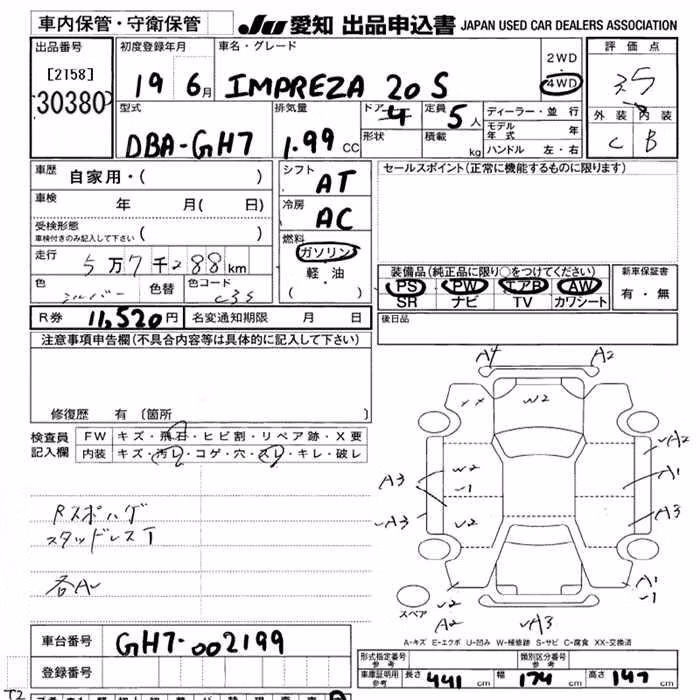 車内保管・守衛保管 JU 愛知 出品申込書 JAPAN USED CAR DEALERS ASSOCIATION
出品番号 初度登録年月 車名・グレード 2WD・4WD 評価点
[2158] 30380 19 6月 IMPREZA 20S 3.5
型式 排気量 ドア 4 定員 5人 ディーラー・並行 外装 内装
DBA-GH7 1.99 CC 形状 積載 kg モデル年式 年 C B
ハンドル 左・右
車歴 自家用・( ) シフト AT セールスポイント(正常に機能するものに限ります)
車検 年 月( 日) 冷房 AC
受検形態 車検付きのみ記入して下さい ( )
燃料 ガソリン 軽・油 ( )
走行 5万7千288km 装備品(純正品に限り○をつけてください) 新車保証書
色 シルバー 色替 色コード C3S PS PW エアB AW 有・無
SR ナビ TV カワシート
R券 11,520円 名変通知期限 月 日 後日品
注意事項申告欄(不具合内容等は具体的に記入して下さい)
修復歴 有 〔箇所 〕
検査員記入欄 FW キズ・飛石・ヒビ割・リペア跡・X要
内装 キズ・汚レ・コゲ・穴・スレ・キレ・破レ
Rスポハゲ
スタッドレスT
各A
A4 A2
XX W2
A2
A3 W2 -1 A1
A3 A3
A1
-1
A2 A3
スペア
A-キズ E-エクボ U-凹み W-補修跡 S-サビ C-腐食 XX-交換済
車台番号 GH7-002199
登録番号
形式指定番号 参考 類別区分番号 参考
車庫証明用 参考 長さ 441 cm 幅 174 cm 高さ 147 cm
T2